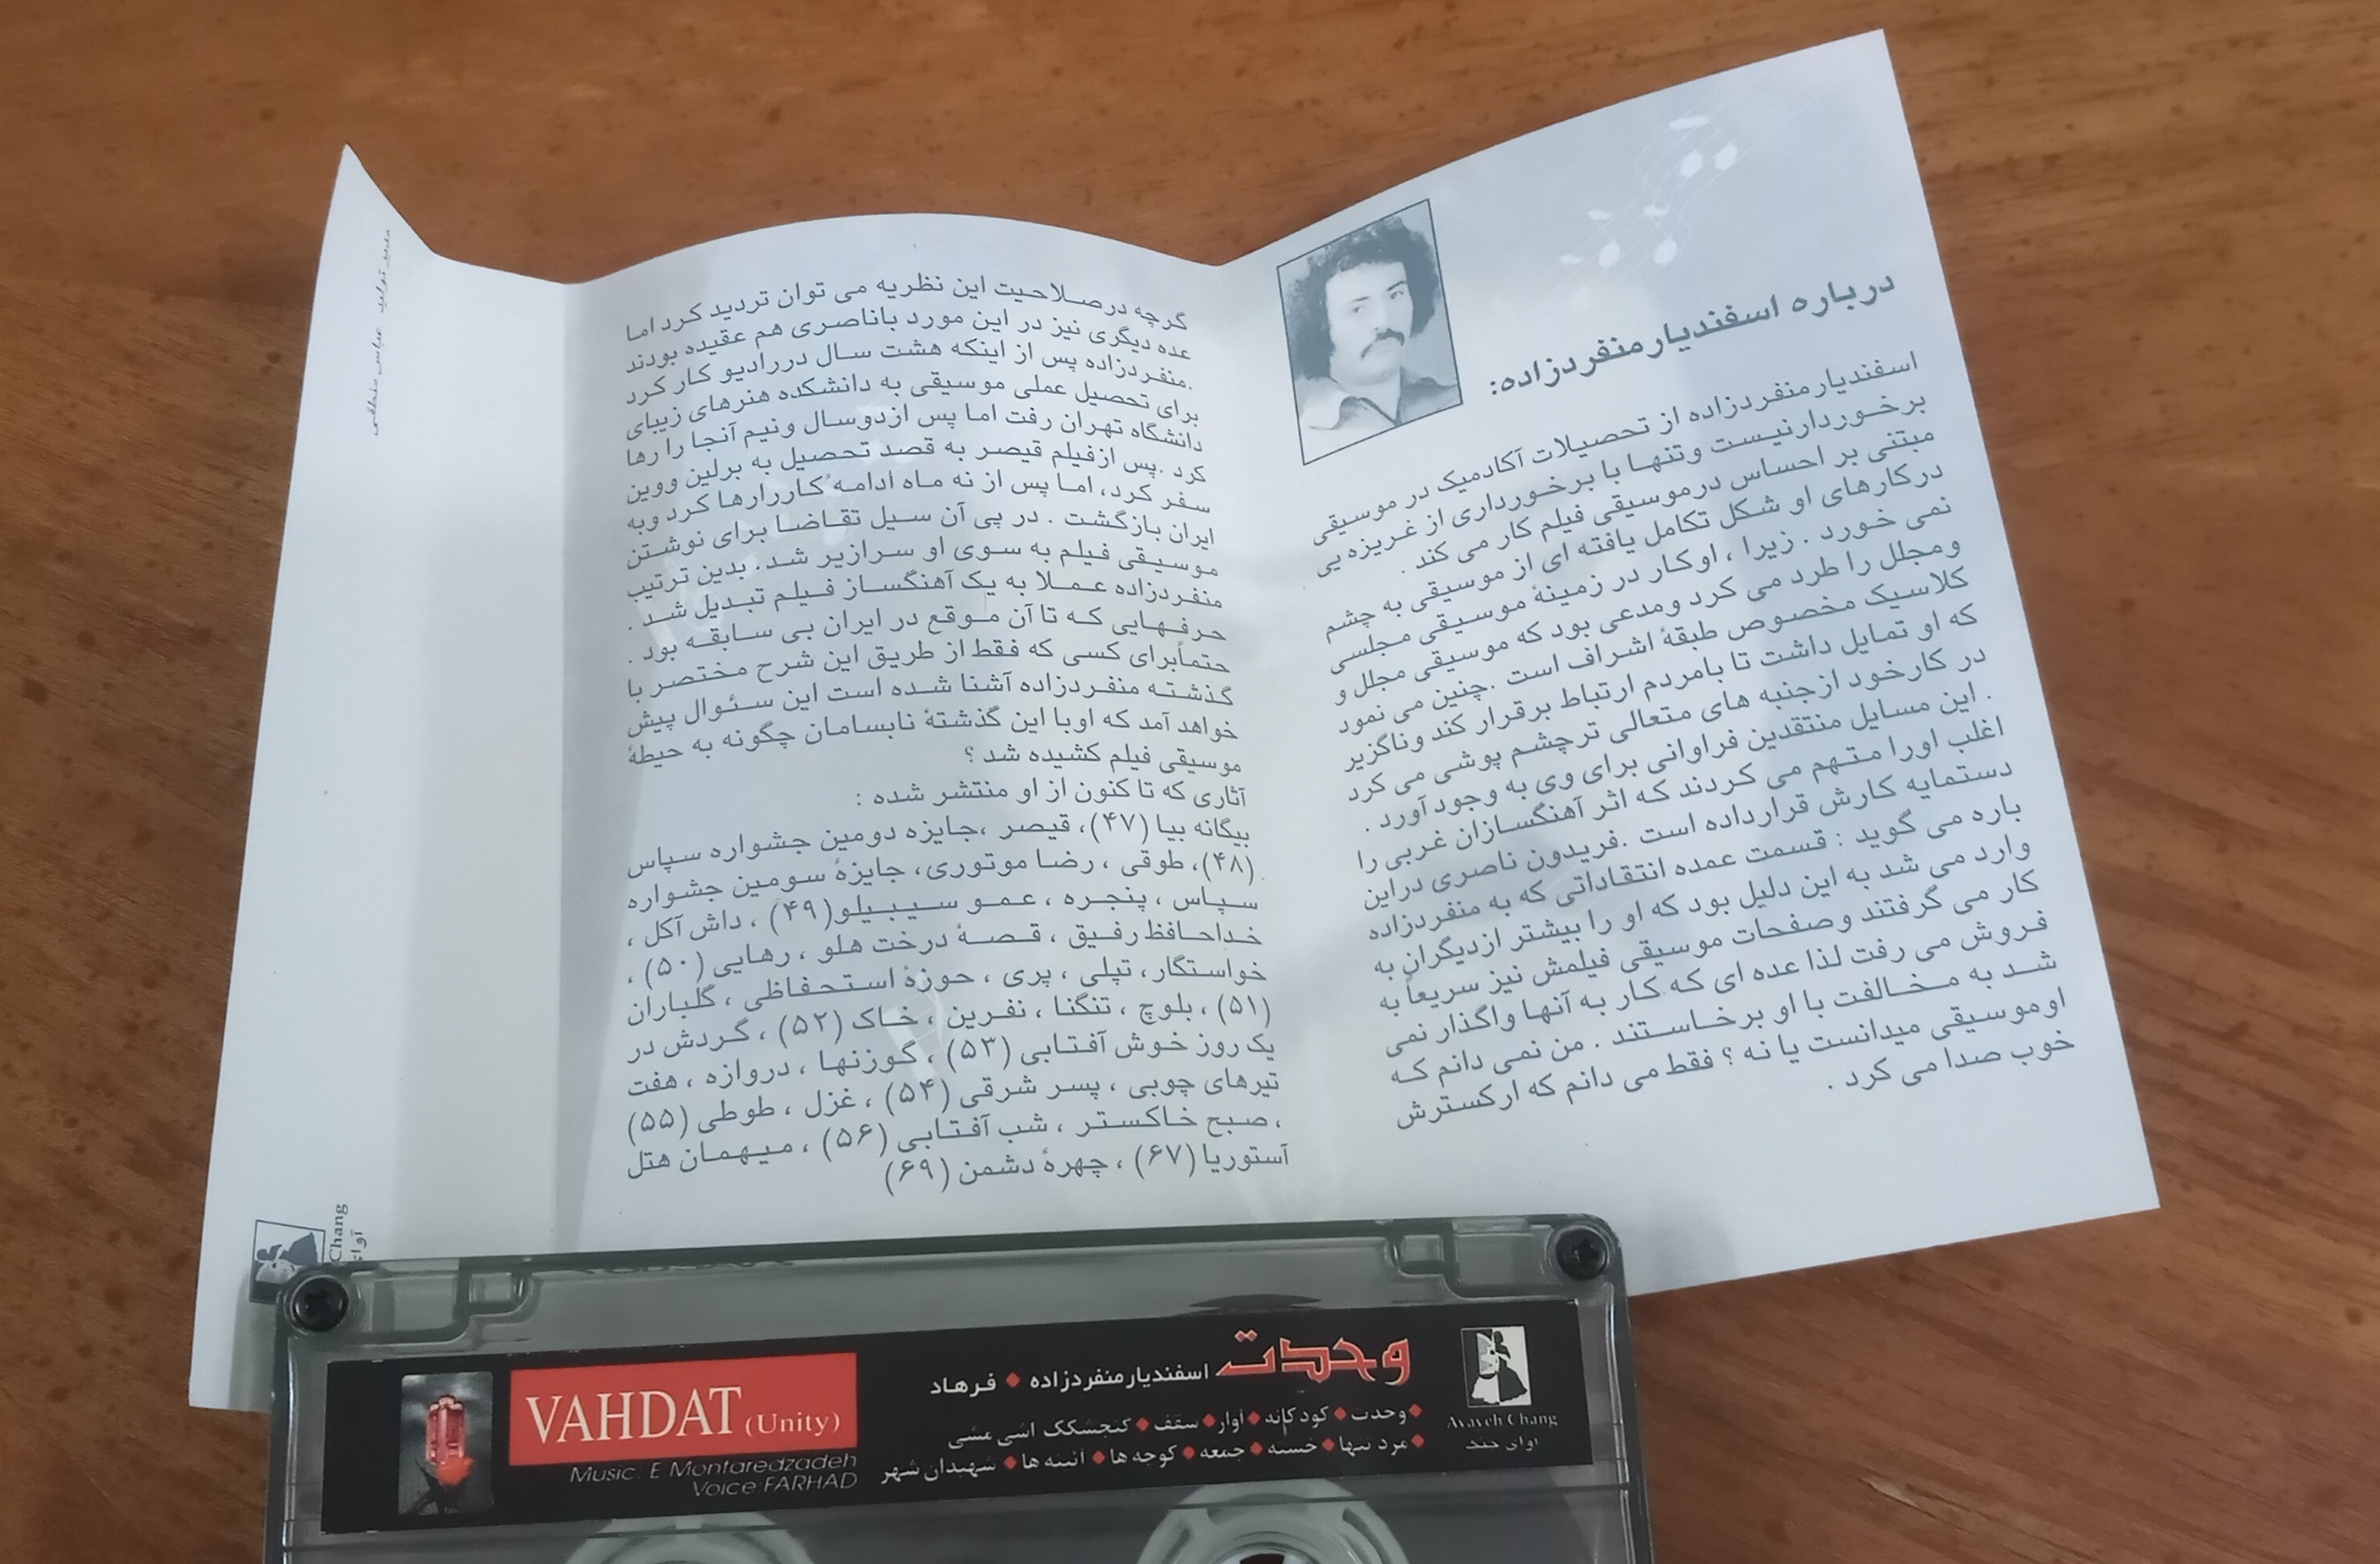 درباره اسفندیار منفردزاده:
اسفندیار منفردزاده از تحصیلات آکادمیک در موسیقی
برخوردار نیست و تنها با برخورداری از غریزه یی
مبتنی بر احساس در موسیقی فیلم کار می کند .
در کارهای او شکل تکامل یافته ای از موسیقی به چشم
نمی خورد . زیرا ، او کار در زمینهٔ موسیقی مجلسی
و مجلل را طرد می کرد و مدعی بود که موسیقی مجلل و
کلاسیک مخصوص طبقهٔ اشراف است . چنین می نمود
که او تمایل داشت تا با مردم ارتباط برقرار کند و ناگزیر
در کار خود از جنبه های متعالی تر چشم پوشی می کرد
. این مسایل منتقدین فراوانی برای وی به وجود آورد .
اغلب او را متهم می کردند که اثر آهنگسازان غربی را
دستمایه کارش قرار داده است . فریدون ناصری در این
باره می گوید : قسمت عمده انتقاداتی که به منفردزاده
وارد می شد به این دلیل بود که او را بیشتر از دیگران به
کار می گرفتند و صفحات موسیقی فیلمش نیز سریعاً به
فروش می رفت لذا عده ای که کار به آنها واگذار نمی
شد به مخالفت با او برخاستند . من نمی دانم که
او موسیقی میدانست یا نه ؟ فقط می دانم که ارکسترش
خوب صدا می کرد .
گرچه در صلاحیت این نظریه می توان تردید کرد اما
عده دیگری نیز در این مورد با ناصری هم عقیده بودند
.منفردزاده پس از اینکه هشت سال در رادیو کار کرد
برای تحصیل عملی موسیقی به دانشکده هنرهای زیبای
دانشگاه تهران رفت اما پس از دو سال و نیم آنجا را رها
کرد .پس از فیلم قیصر به قصد تحصیل به برلین و وین
سفر کرد، اما پس از نه ماه ادامهٔ کار را رها کرد و به
ایران بازگشت . در پی آن سیل تقاضا برای نوشتن
موسیقی فیلم به سوی او سرازیر شد. بدین ترتیب
منفردزاده عملا به یک آهنگساز فیلم تبدیل شد .
حرفهایی که تا آن موقع در ایران بی سابقه بود .
حتماً برای کسی که فقط از طریق این شرح مختصر با
گذشته منفردزاده آشنا شده است این سئوال پیش
خواهد آمد که او با این گذشتهٔ نابسامان چگونه به حیطهٔ
موسیقی فیلم کشیده شد ؟
آثاری که تا کنون از او منتشر شده :
بیگانه بیا (۴۷)، قیصر ،جایزه دومین جشواره سپاس
(۴۸)، طوقی ، رضا موتوری، جایزهٔ سومین جشواره
سپاس ، پنجره ، عمو سیبیلو(۴۹) ، داش آکل ،
خداحافظ رفیق ، قصهٔ درخت هلو ، رهایی (۵۰) ،
خواستگار، تپلی ، پری ، حوزهٔ استحفاظی ، گلباران
(۵۱) ، بلوچ ، تنگنا ، نفرین ، خاک (۵۲) ، گردش در
یک روز خوش آفتابی (۵۳) ، گوزنها ، دروازه ، هفت
تیرهای چوبی ، پسر شرقی (۵۴) ، غزل ، طوطی (۵۵)
، صبح خاکستر ، شب آفتابی (۵۶) ، میهمان هتل
آستوریا (۶۷) ، چهرهٔ دشمن (۶۹)
مدیر تولید عباس منطقی
Chang
وحدت اسفندیار منفردزاده ♦ فرهاد
♦وحدت♦کودکانه♦آوار♦سقف♦گنجشکک اشی مشی
♦مرد تنها♦خسته♦جمعه♦کوچه ها♦آئینه ها♦شهیدان شهر
Avayeh Chang
آوای چنگ
VAHDAT (Unity)
Music: E Monfaredzadeh
Voice:FARHAD